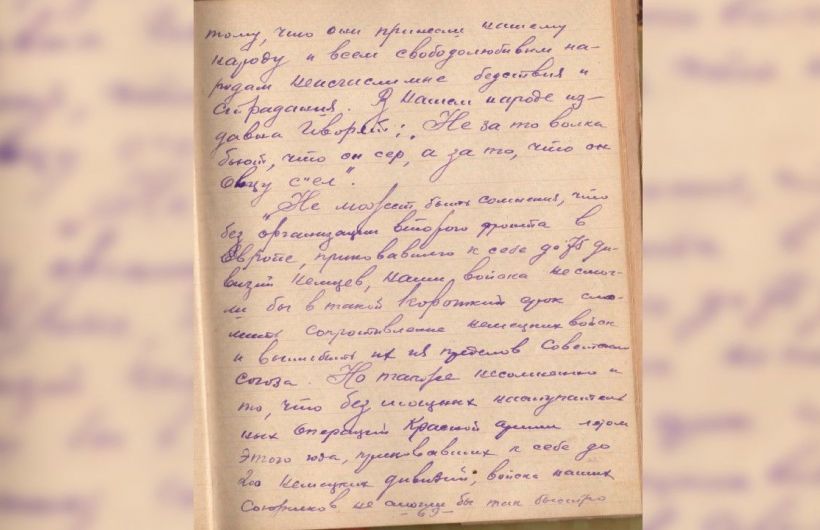 тому, что они принесли нашему
народу и всем свободолюбивым на-
родам неисчислимые бедствия и
страдания. В нашем народе из-
давна говорят: "Не за то волка
бьют, что он сер, а за то, что он
овцу с"ел".
Не может быть сомнения, что
без организации второго фронта в
Европе, приковавшего к себе до 75 ди-
визий немцев, наши войска не смог-
ли бы в такой короткий срок сло-
мить сопротивление немецких войск
и вышибить их из пределов Советского
Союза. Но также несомненно и
то, что без мощных наступатель
ных операций Красной армии летом
этого года, приковавших к себе до
200 немецких дивизий, войска наших
Союзников не смогли бы так быстро